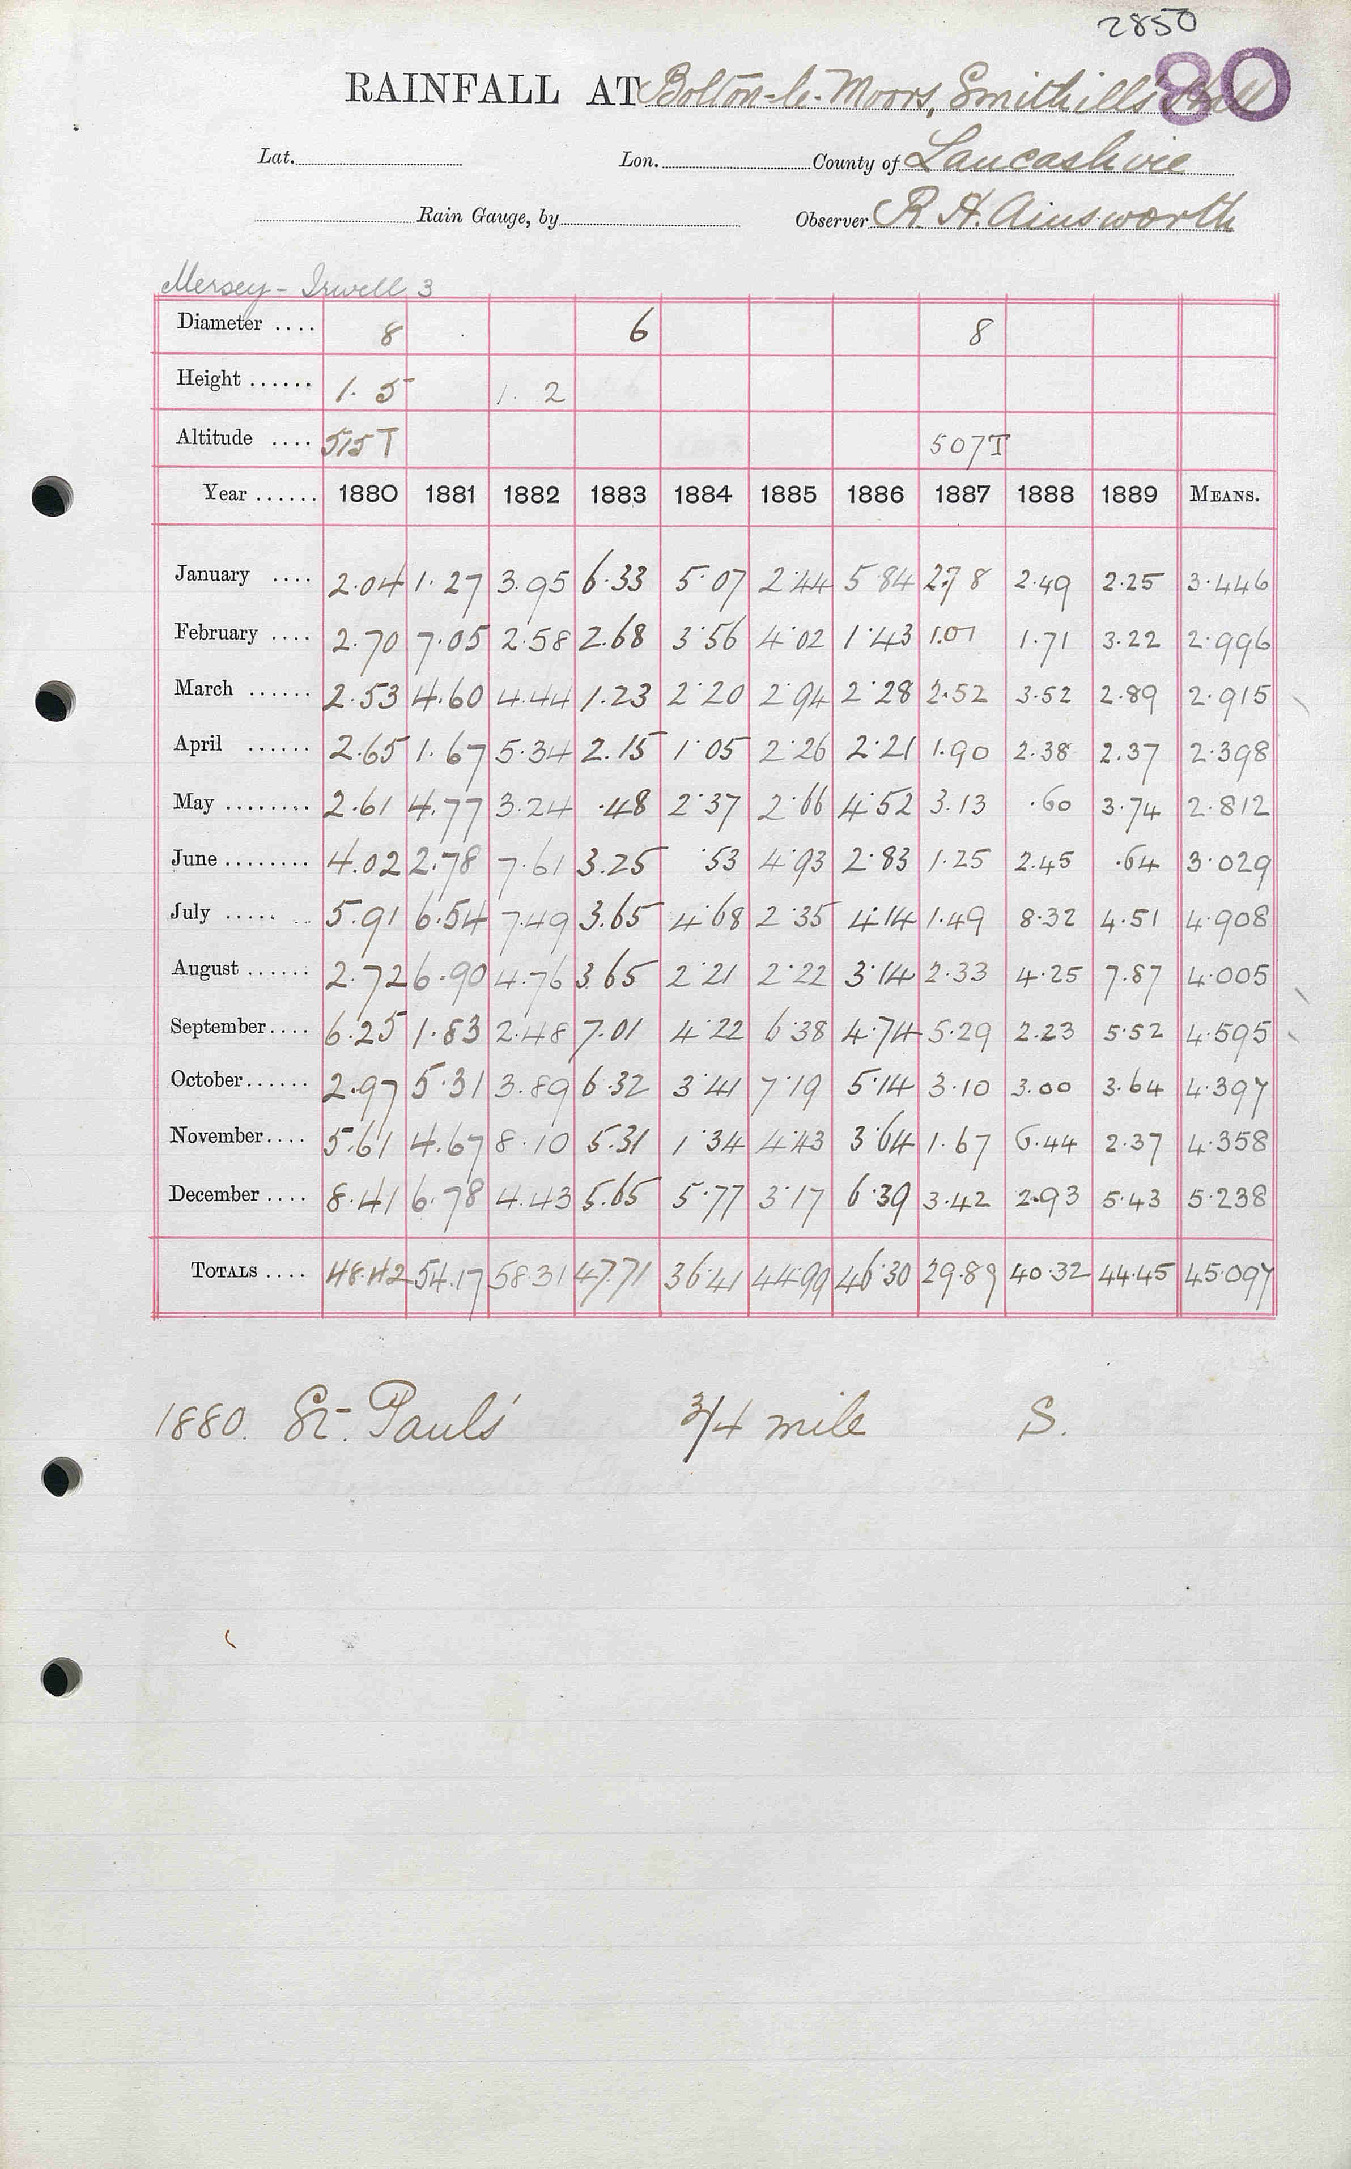 2850
80
RAINFALL AT Bolton-le-Moors, Smithills Hall
Lat. Lon. County of Lancashire
Rain Gauge, by Observer R. H. Ainsworth
Mersey - Irwell 3
Diameter .... 8 6 8
Height ...... 1. 5 1. 2
Altitude .... 515 T 507 T
Year ...... 1880 1881 1882 1883 1884 1885 1886 1887 1888 1889 MEANS.
January .... 2.04 1.27 3.95 6.33 5.07 2.44 5.84 2.78 2.49 2.25 3.446
February .... 2.70 7.05 2.58 2.68 3.56 4.02 1.43 1.01 1.71 3.22 2.996
March ...... 2.53 4.60 4.44 1.23 2.20 2.94 2.28 2.52 3.52 2.89 2.915
April ...... 2.65 1.67 5.34 2.15 1.05 2.26 2.21 1.90 2.38 2.37 2.398
May ........ 2.61 4.77 3.24 .48 2.37 2.66 4.52 3.13 .60 3.74 2.812
June ........ 4.02 2.78 7.61 3.25 .53 4.93 2.83 1.25 2.45 .64 3.029
July ........ 5.91 6.54 7.49 3.65 4.68 2.35 4.14 1.49 8.32 4.51 4.908
August ...... 2.72 6.90 4.76 3.65 2.21 2.22 3.14 2.33 4.25 7.87 4.005
September .... 6.25 1.83 2.48 7.01 4.22 6.38 4.74 5.29 2.23 5.52 4.595
October ...... 2.97 5.31 3.89 6.32 3.41 7.19 5.14 3.10 3.00 3.64 4.397
November .... 5.61 4.67 8.10 5.31 1.34 4.43 3.64 1.67 6.44 2.37 4.358
December .... 8.41 6.78 4.43 5.65 5.77 3.17 6.39 3.42 2.93 5.43 5.238
TOTALS .... 48.42 54.17 58.31 47.71 36.41 44.99 46.30 29.89 40.32 44.45 45.097
1880. St. Paul's 3/4 mile S.